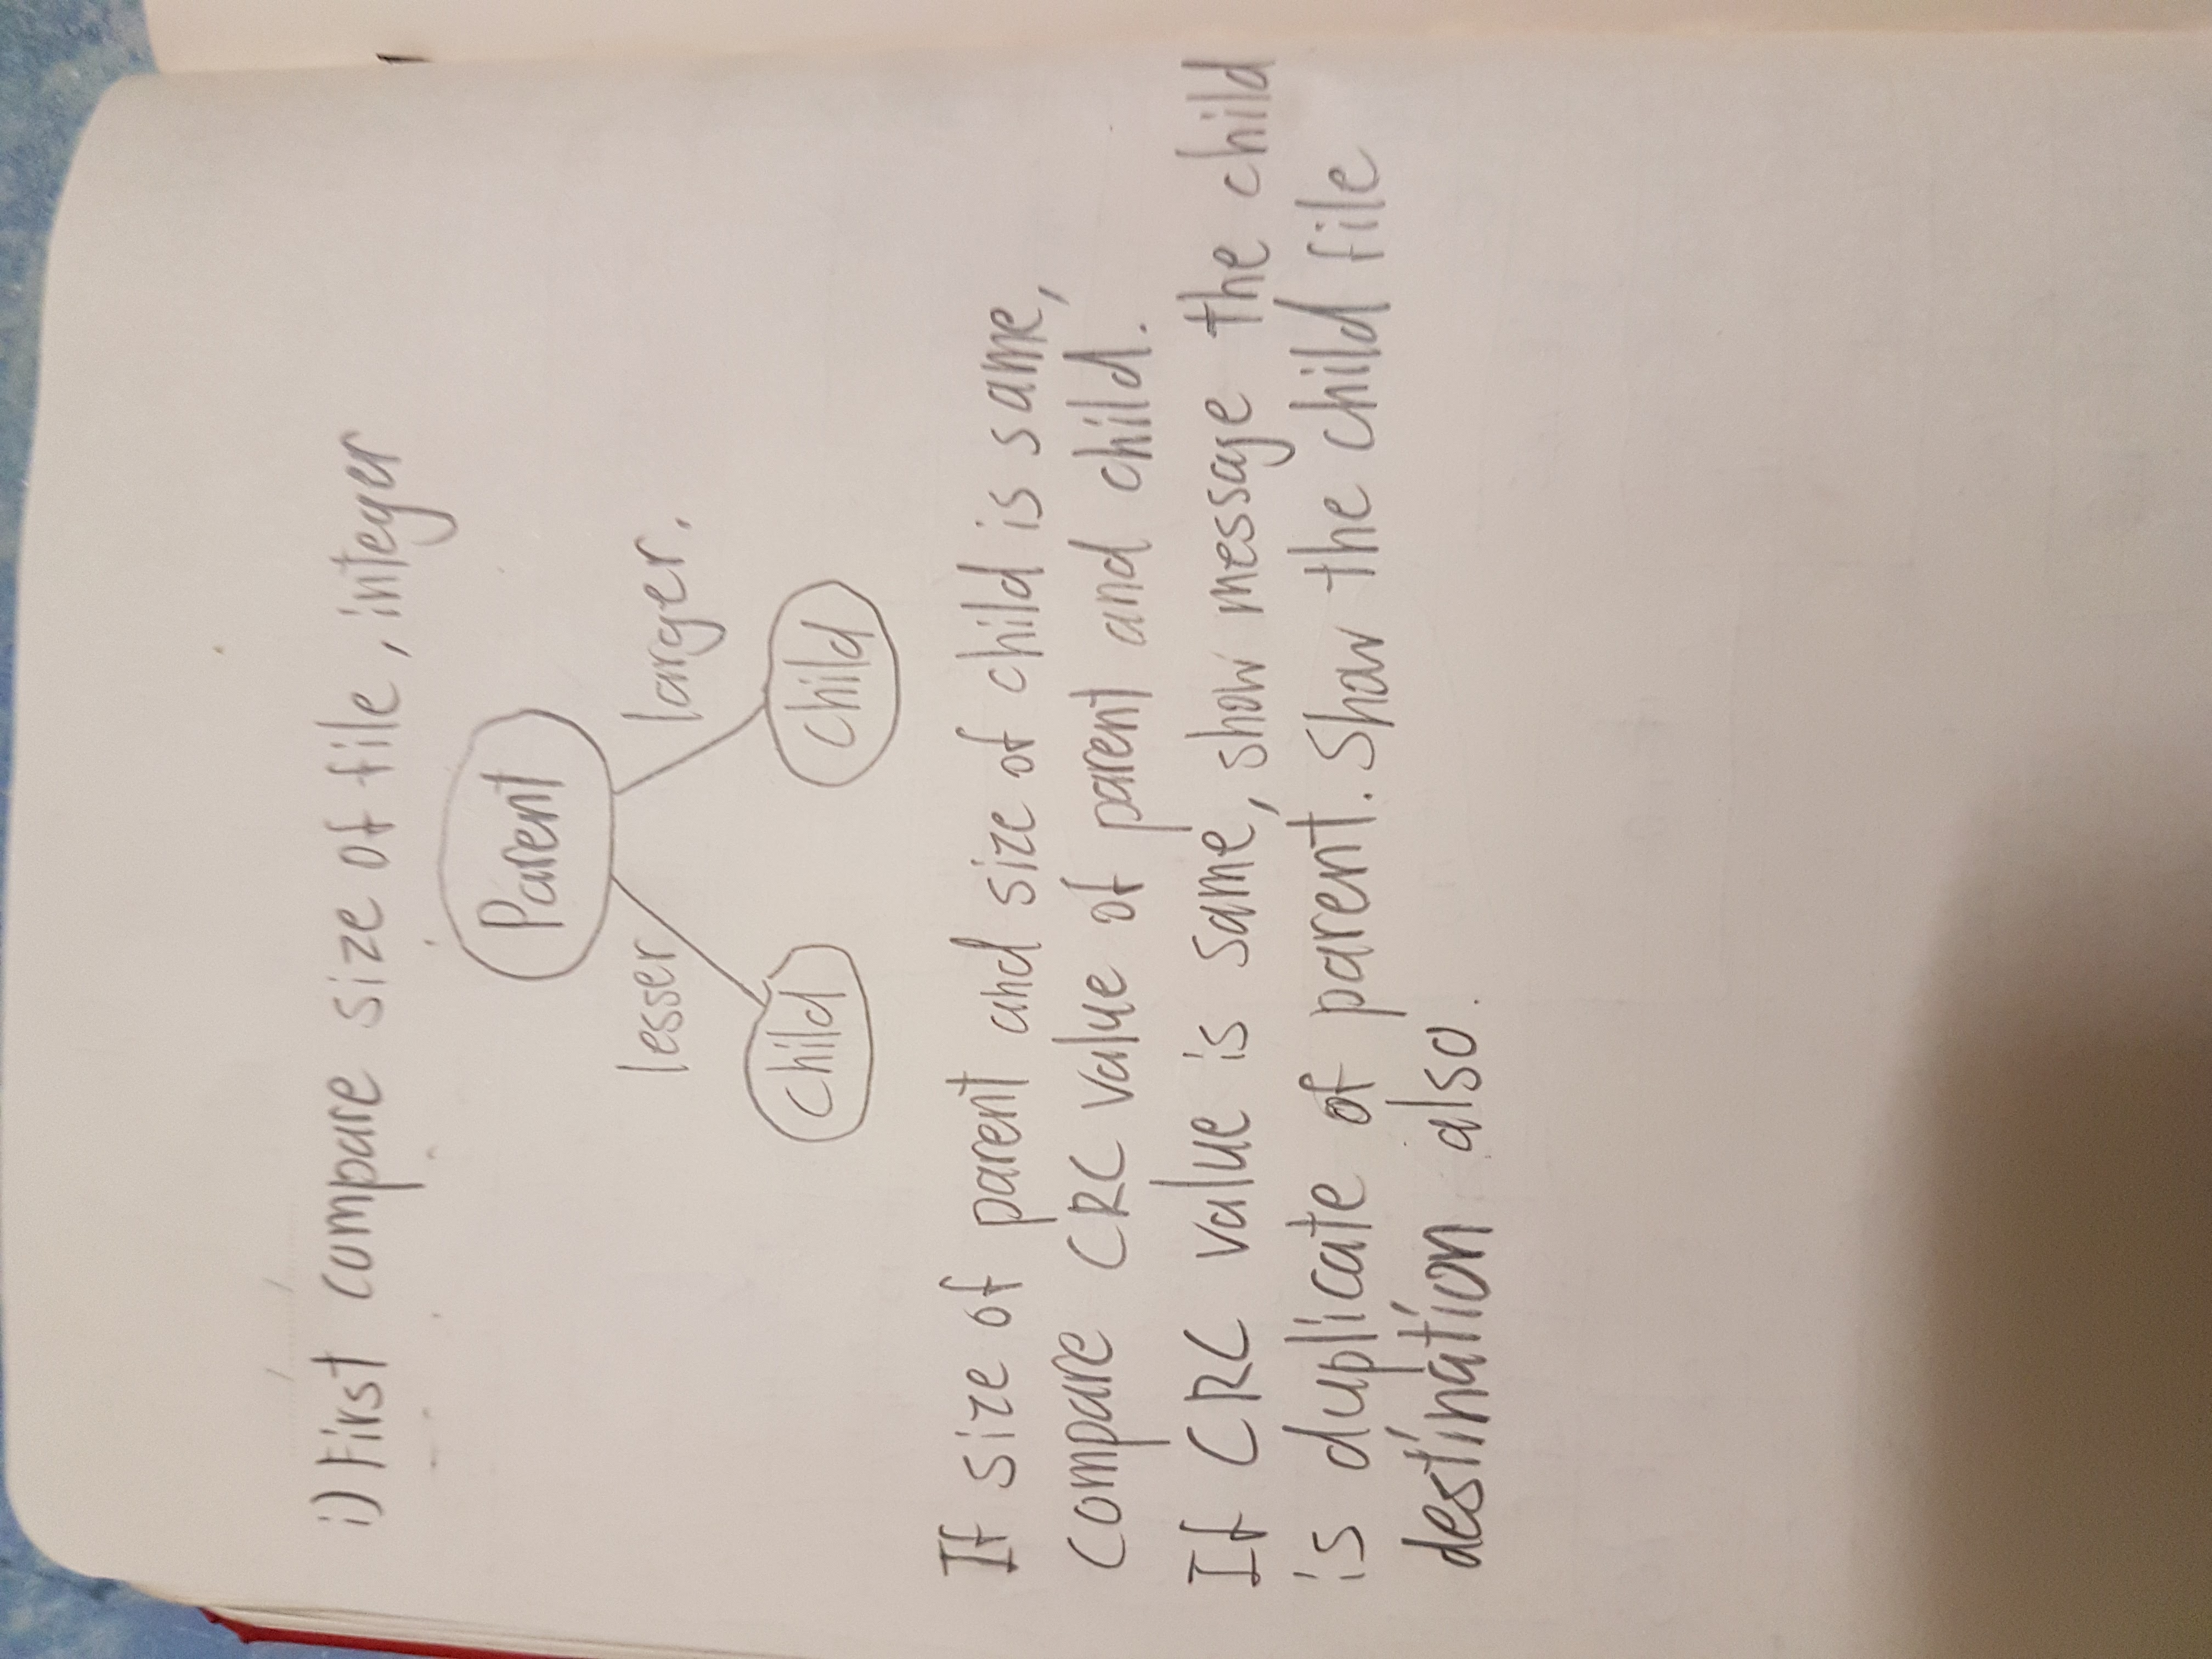 i) First compare size of file, integer
Parent
lesser
larger.
Child
Child
If size of parent and size of child is same,
compare CRC value of parent and child.
If CRC value is same, show message the child
is duplicate of parent. Show the child file
destination also.